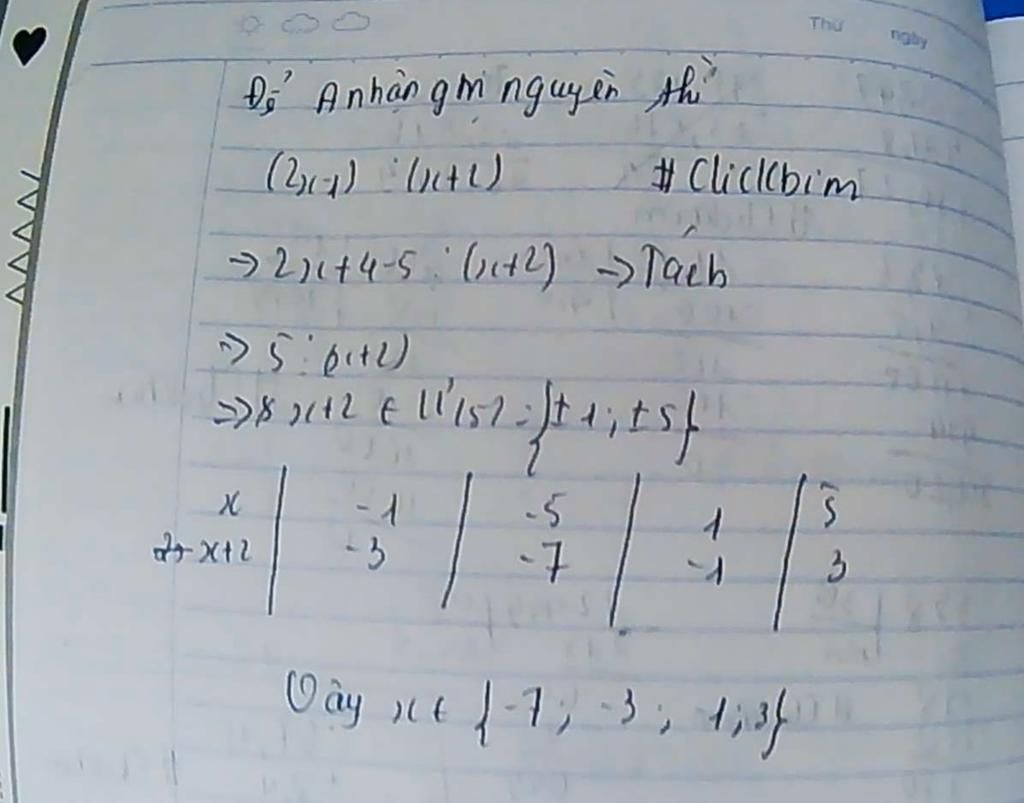 Thứ ngày
Để A nhận gm nguyên thì
(2x-1) ⋮ (x+2) # Clickbim
→ 2x+4-5 ⋮ (x+2) → Tách
→ 5 ⋮ (x+2)
→ x+2 ∈ Ư(5) = {±1; ±5}
x | -1 | -5 | 1 | 5
x+2 | -3 | -7 | -1 | 3
Vậy x ∈ {-7; -3; -1; 3}